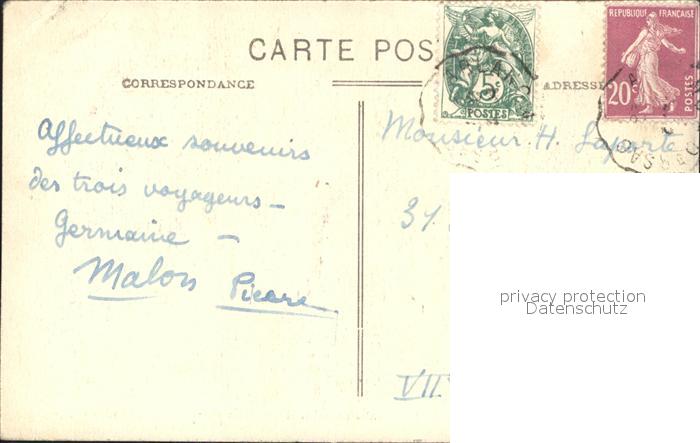 CARTE POS
CORRESPONDANCE
ADRESSE
5c
POSTES
REPUBLIQUE FRANÇAISE
20c
POSTES
Affectueux souvenirs
des trois voyageurs –
Germaine –
Malou Pierre
Monsieur H. Laporte
31
VII
privacy protection
Datenschutz